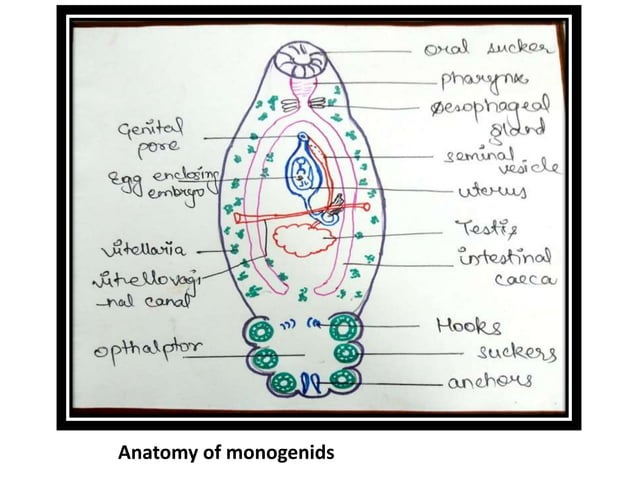 oral sucker
pharynx
oesophageal
gland
Genital
pore
seminal
vesicle
Egg enclosing
embryo
uterus
Testis
Vitellaria
intestinal
caeca
vitellovagi
-nal canal
Hooks
opthalptor
suckers
anchors
Anatomy of monogenids